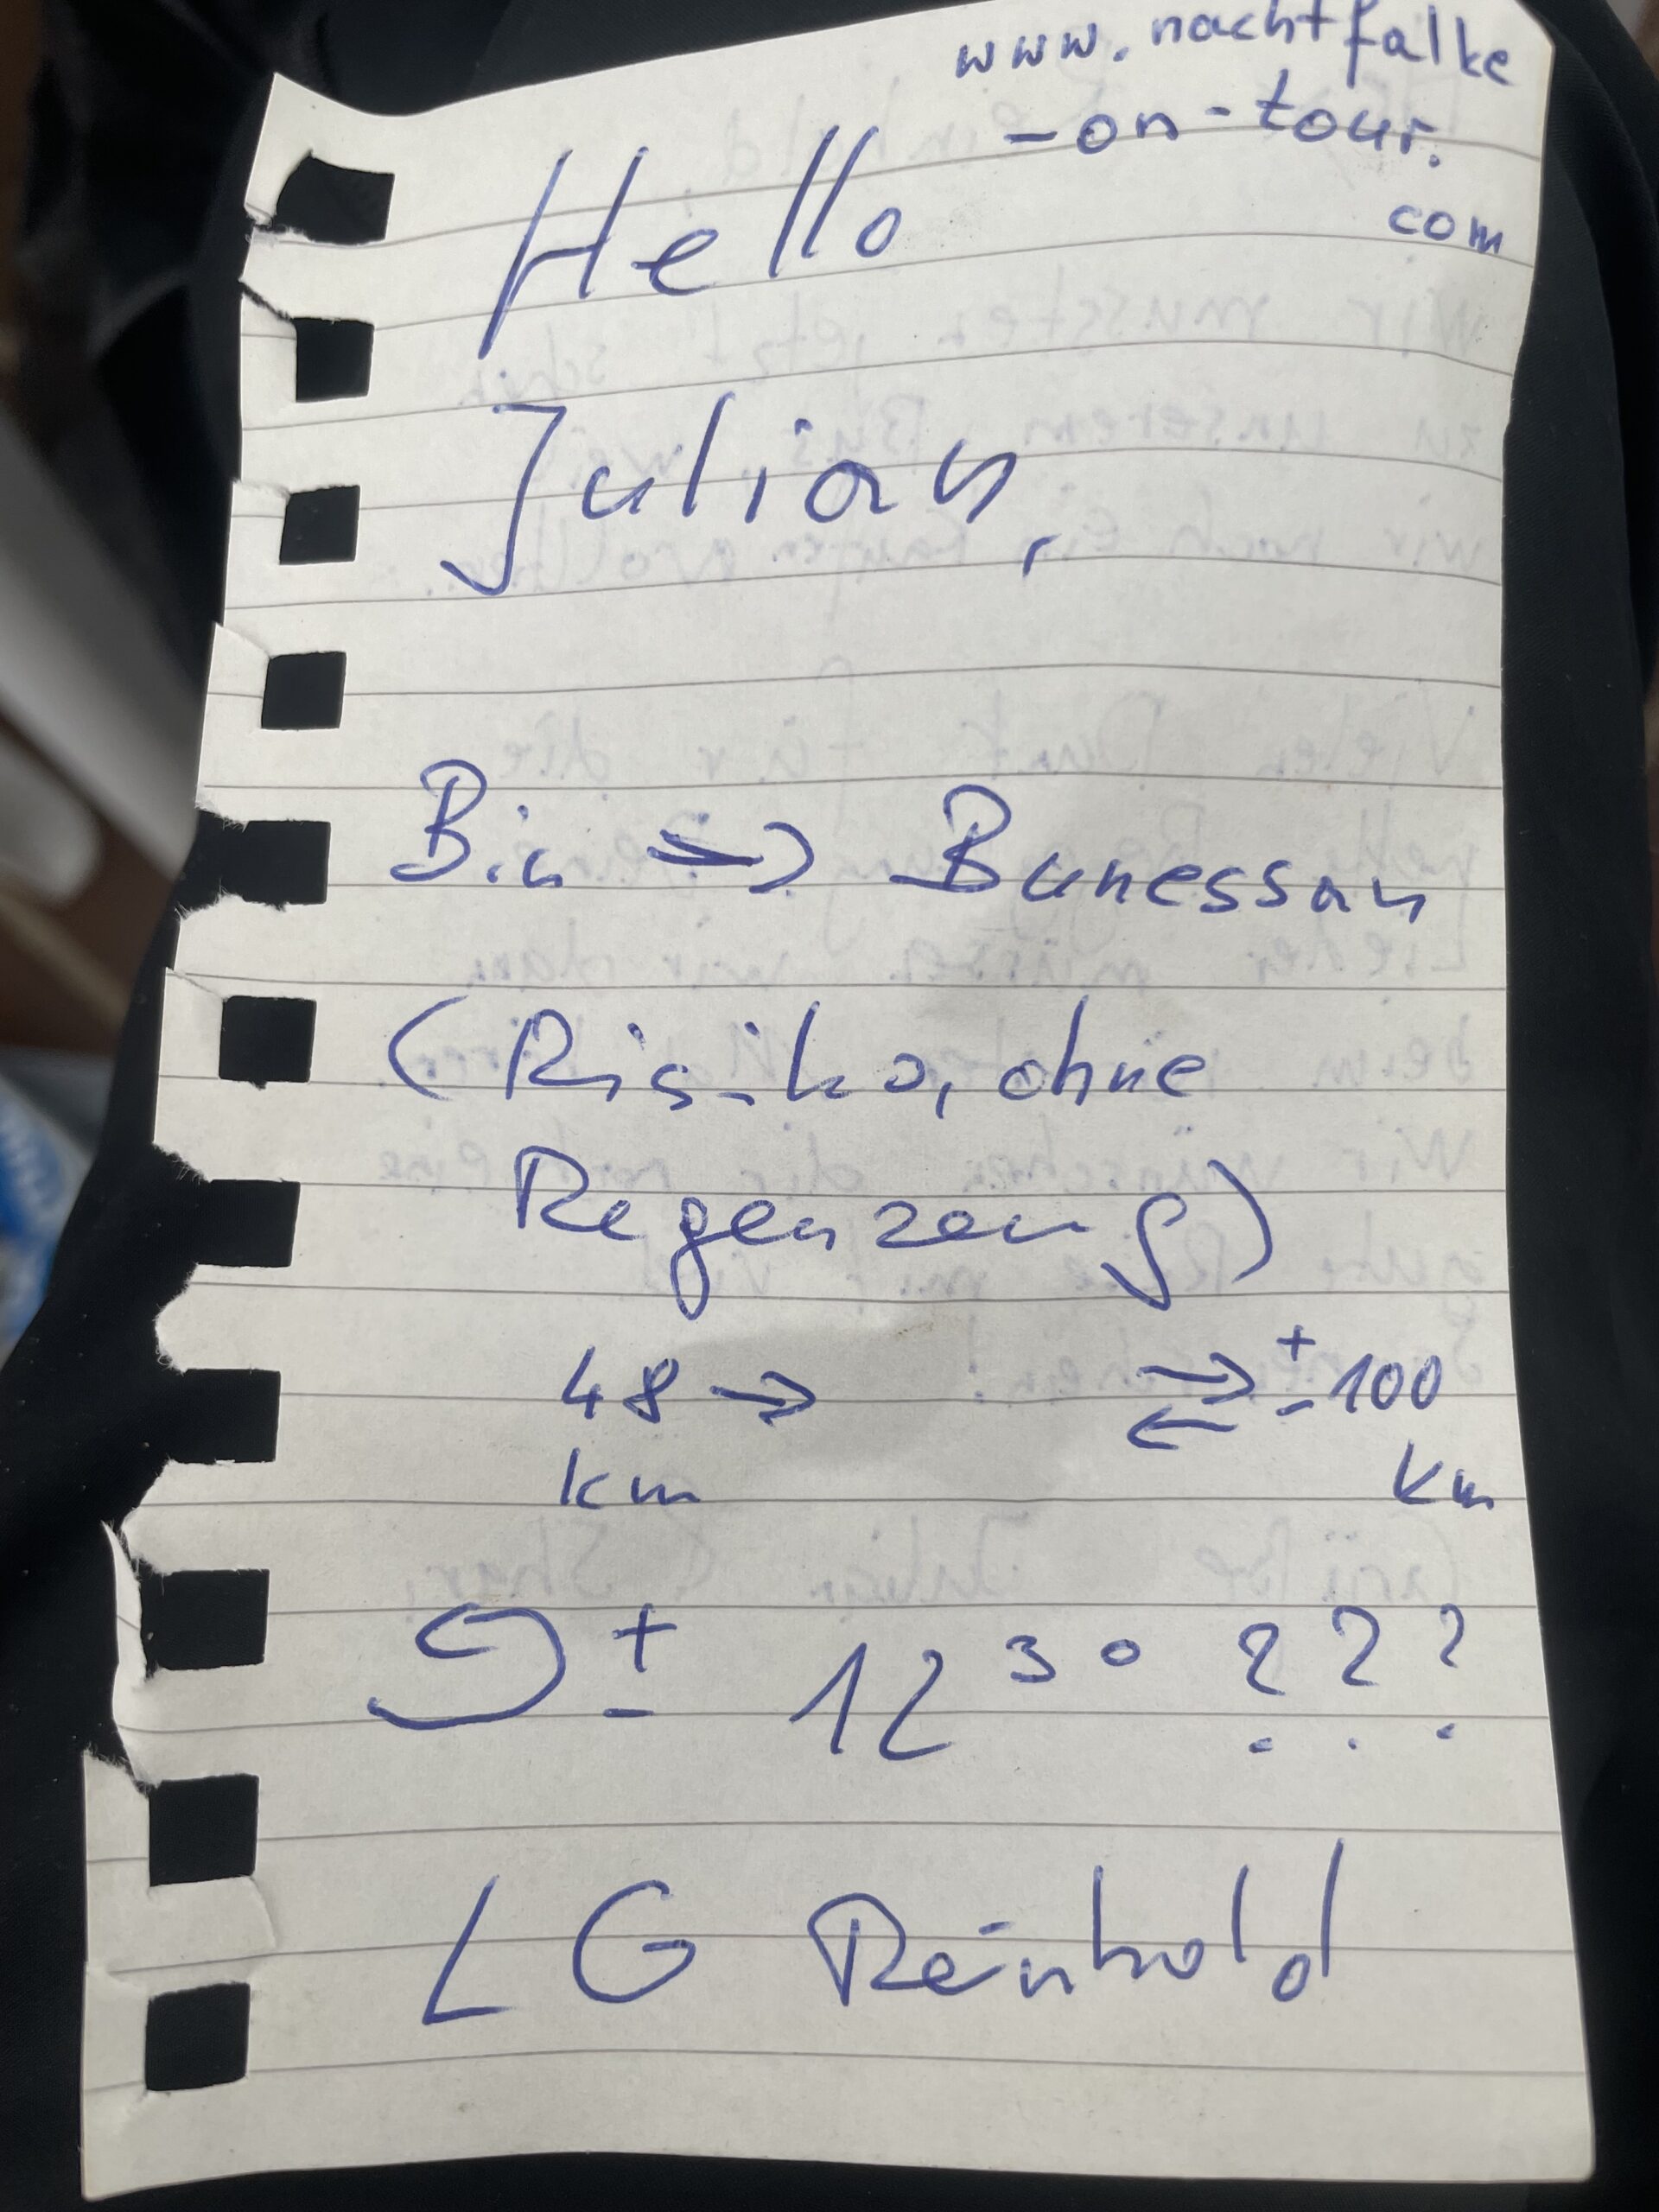 www.nachtfalke
-on-tour.
com
Hello
Julian,
Bin => Bunessan
(Risiko, ohne
Regenzeug)
48 → ⇄ ± 100
km km
± 12³⁰ ???
LG Reinhold